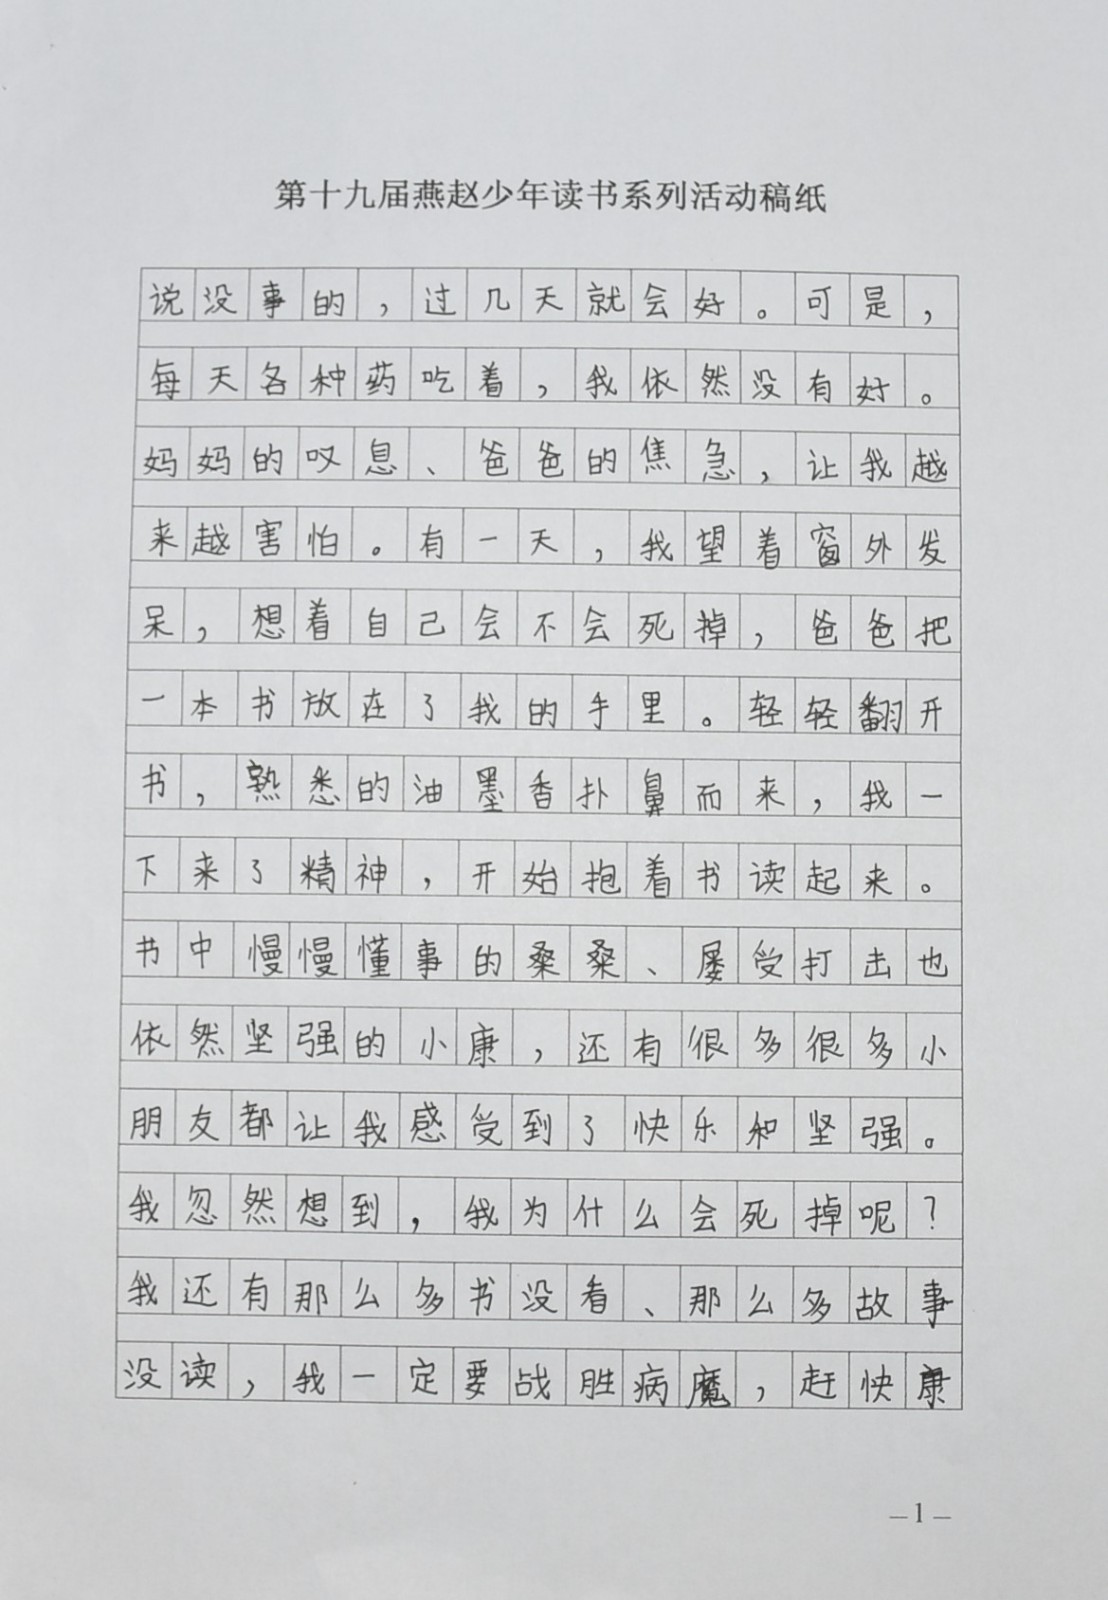 第十九届燕赵少年读书系列活动稿纸
说没事的，过几天就会好。可是，
每天各种药吃着，我依然没有好。
妈妈的叹息、爸爸的焦急，让我越
来越害怕。有一天，我望着窗外发
呆，想着自己会不会死掉，爸爸把
一本书放在了我的手里。轻轻翻开
书，熟悉的油墨香扑鼻而来，我一
下来了精神，开始抱着书读起来。
书中慢慢懂事的桑桑、屡受打击也
依然坚强的小康，还有很多很多小
朋友都让我感受到了快乐和坚强。
我忽然想到，我为什么会死掉呢？
我还有那么多书没看、那么多故事
没读，我一定要战胜病魔，赶快康
—1—